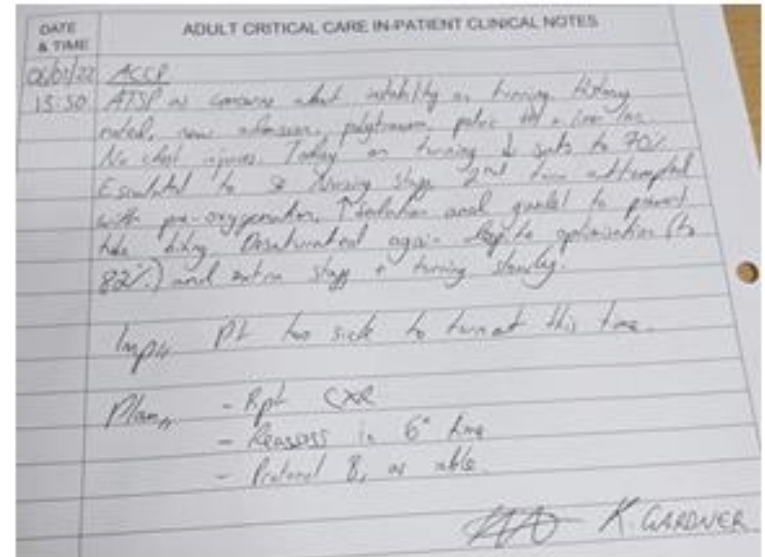 DATE & TIME
ADULT CRITICAL CARE IN-PATIENT CLINICAL NOTES
ACCP
15:50 ATSP as concerns about instability on turning. History
noted, new admission, polytrauma, pelvic
No chest injuries. Today on turning ↓ sats to 70%.
Escalated to Nursing staff 2nd turn attempted
with pre-oxygenation, ↑ sedation and guedel to prevent
tube biting. Desaturated again despite optimisation (to
82%.) and extra staff + turning slowly.
Imp// Pt too sick to turn at this time.
Plan// - Rpt CXR
- Reassess in 6° time
- Protocol as able.
K. GARDNER